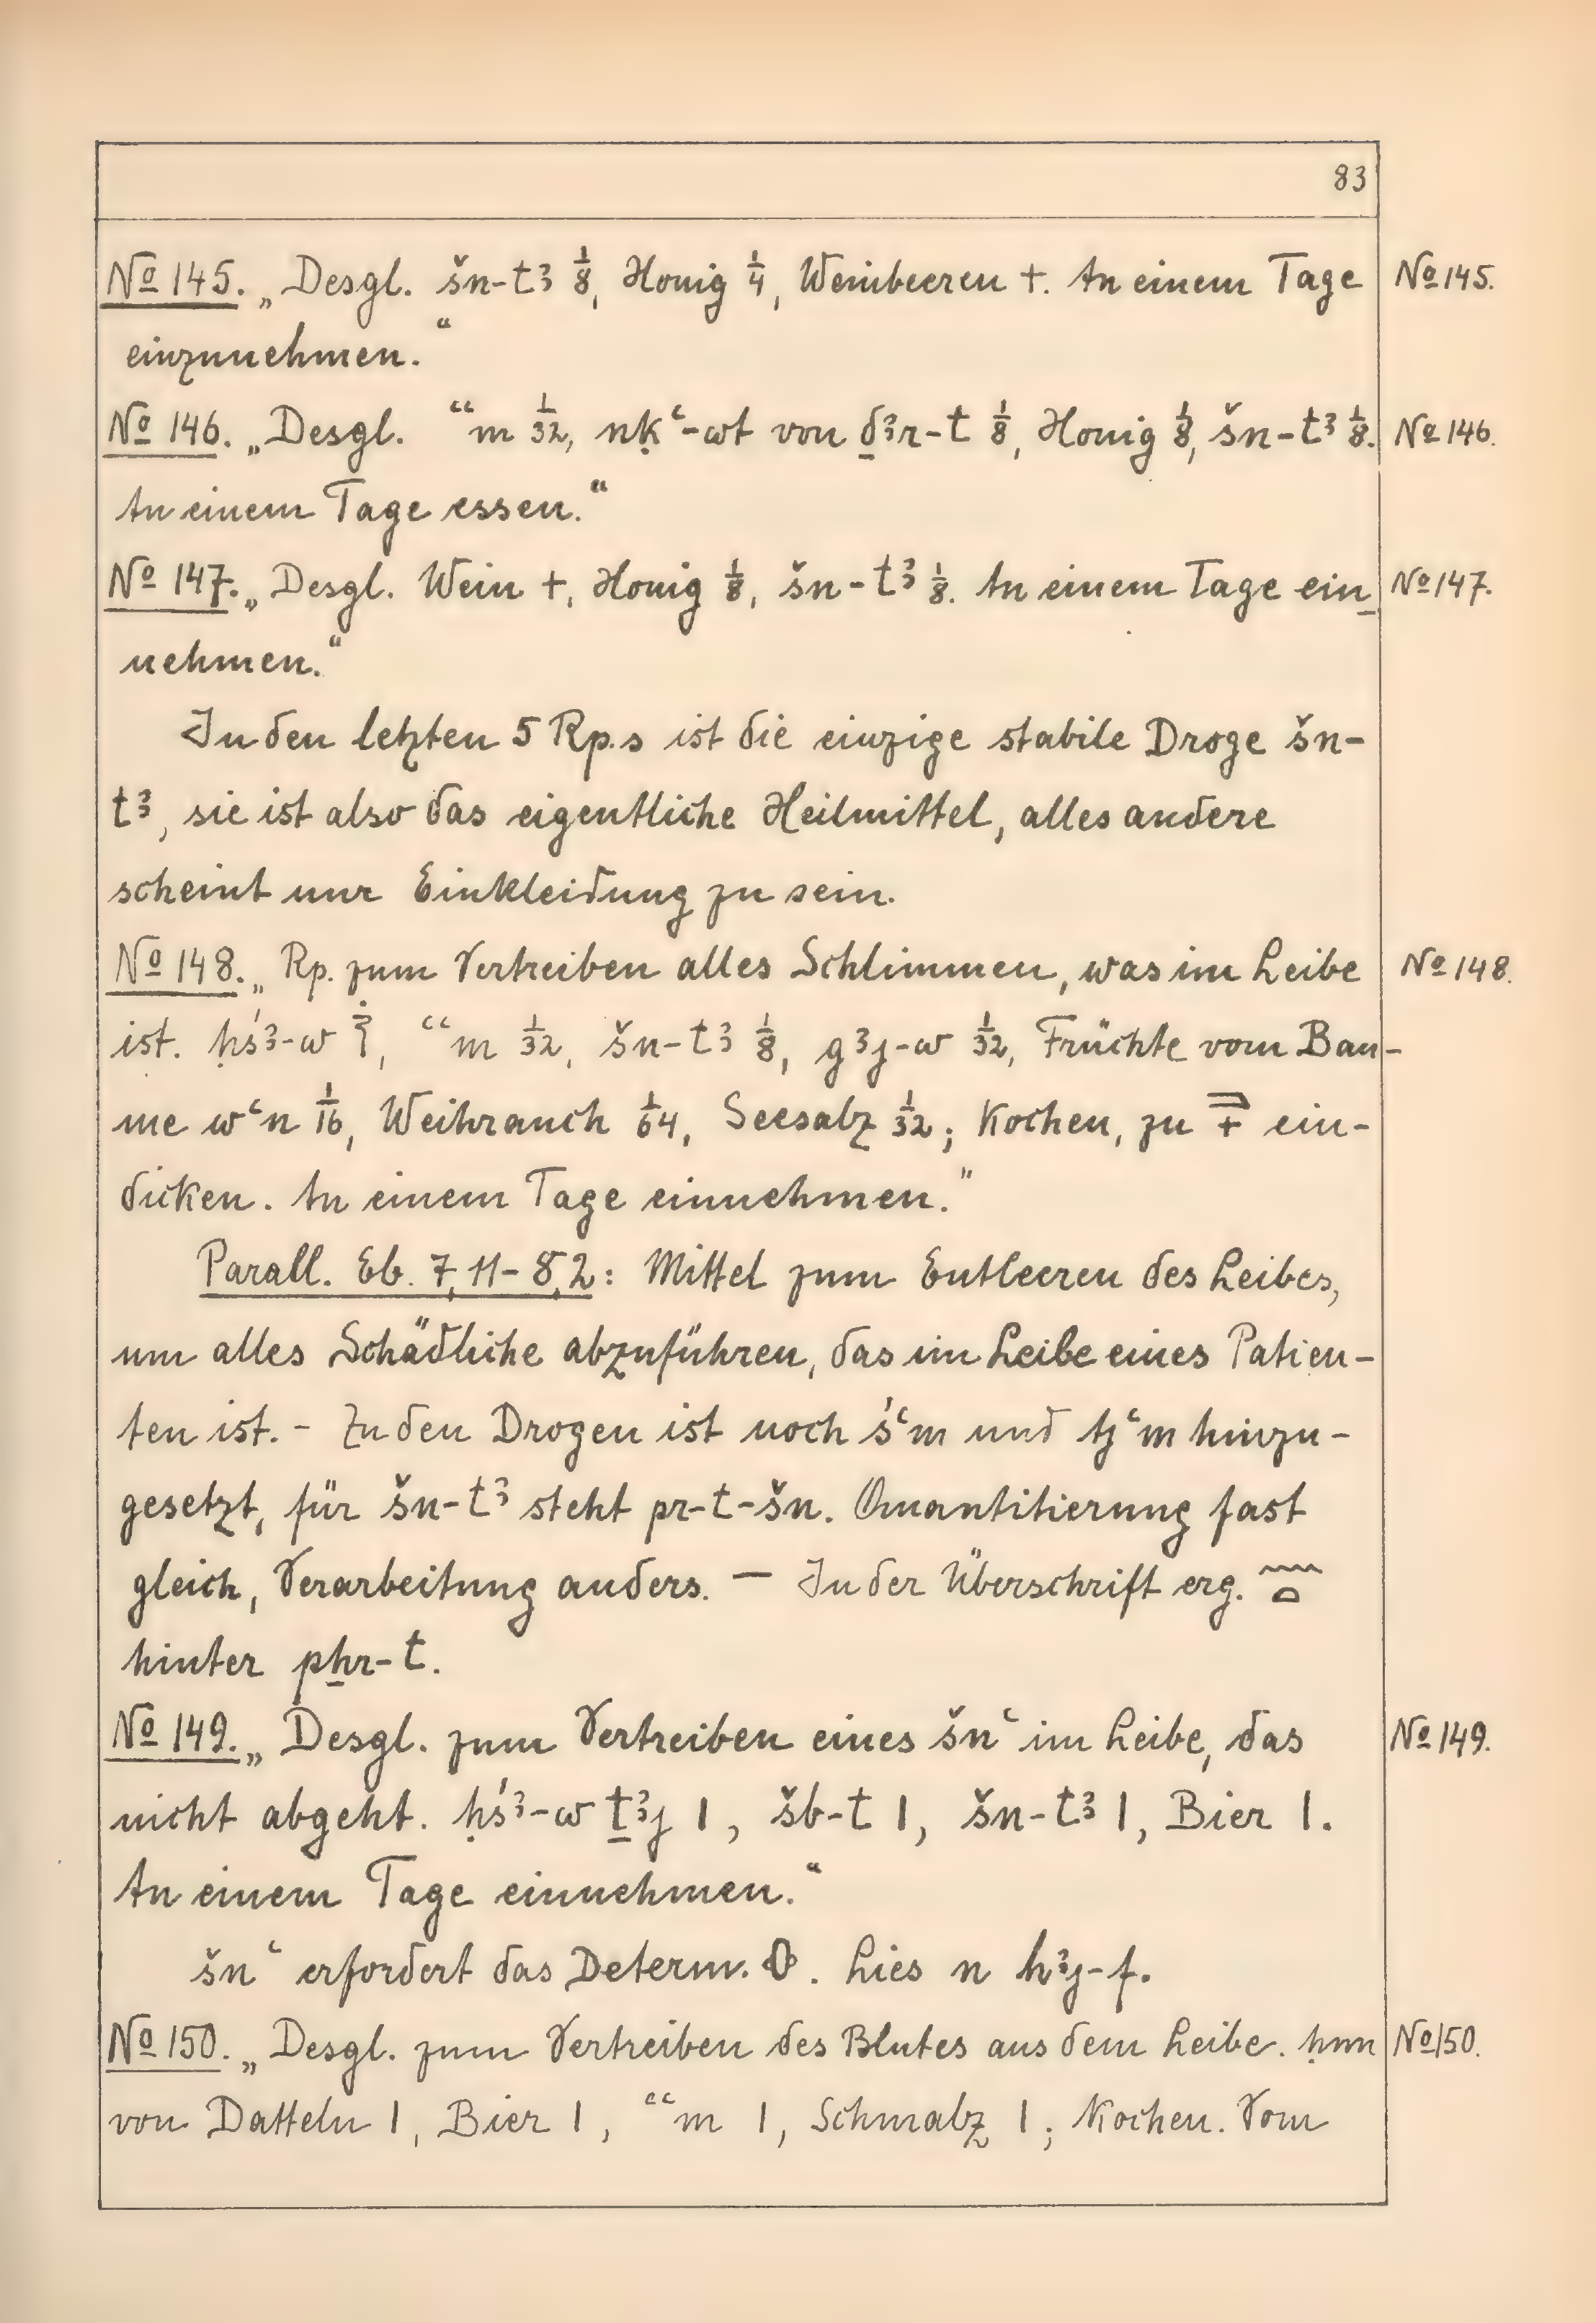 83
No 145. „Desgl. šn-tꜣ 1/8, Honig 1/4, Weinbeeren +. An einem Tage
No 145.
einzunehmen.“
No 146. „Desgl. ꜥꜥm 1/32, nḳꜥ-wt von ḏꜣr-t 1/8, Honig 1/8, šn-tꜣ 1/8.
No 146.
An einem Tage essen.“
No 147. „Desgl. Wein +, Honig 1/8, šn-tꜣ 1/8. An einem Tage ein-
No 147.
nehmen.“
In den letzten 5 Rp.s ist die einzige stabile Droge šn-
tꜣ, sie ist also das eigentliche Heilmittel, alles andere
scheint nur Einkleidung zu sein.
No 148. „Rp. zum Vertreiben alles Schlimmen, was im Leibe
No 148.
ist. ḥśꜣ-w, ꜥꜥm 1/32, šn-tꜣ 1/8, gꜣj-w 1/32, Früchte vom Bau-
me wꜥn 1/16, Weihrauch 1/64, Seesalz 1/32; Kochen, zu ein-
dicken. An einem Tage einnehmen."
Parall. Eb. 7,11-8,2: Mittel zum Entleeren des Leibes,
um alles Schädliche abzuführen, das im Leibe eines Patien-
ten ist. - Zu den Drogen ist noch śꜥm und hinzu-
gesetzt, für šn-tꜣ steht pr-t-šn. Quantitierung fast
gleich, Verarbeitung anders. — In der Überschrift erg. 𓈖𓏏
hinter pẖr-t.
No 149. „Desgl. zum Vertreiben eines šnꜥ im Leibe, das
No 149.
nicht abgeht. ḥśꜣ-w ṯꜣj 1, šb-t 1, šn-tꜣ 1, Bier 1.
An einem Tage einnehmen.“
šnꜥ erfordert das Determ. . Lies n hꜣj-f.
No 150. „Desgl. zum Vertreiben des Blutes aus dem Leibe. ḥnn
No 150.
von Datteln 1, Bier 1, ꜥꜥm 1, Schmalz 1; Kochen. Vom